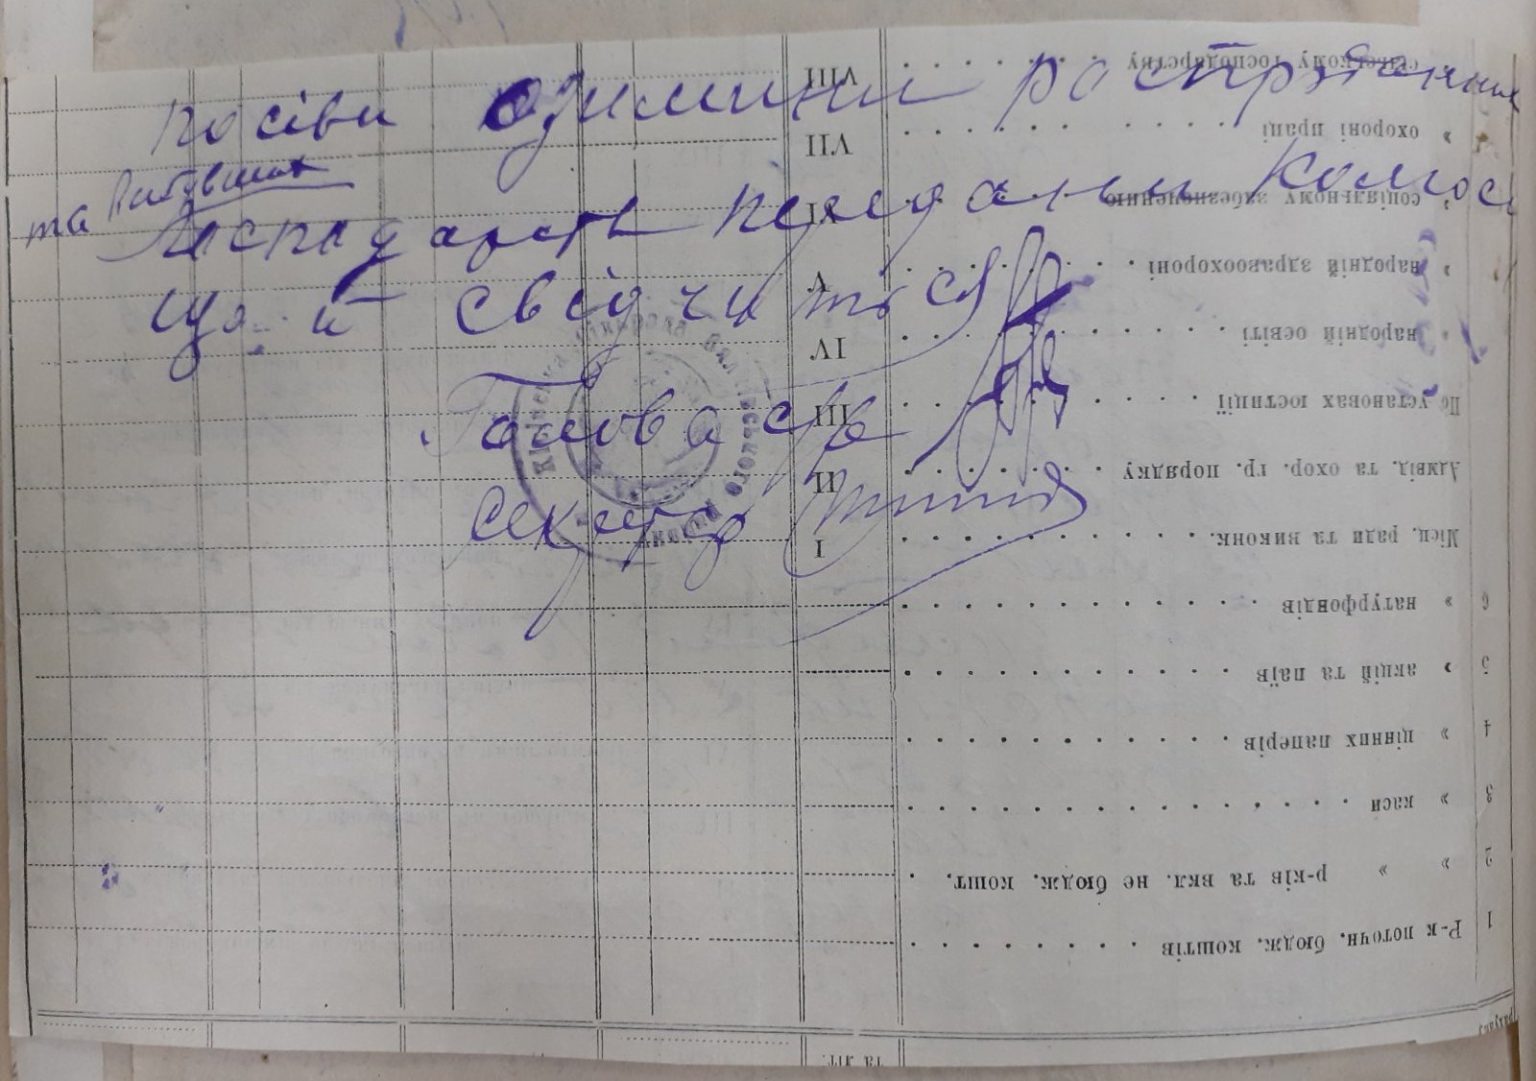 посіви озимини
та
господарств передани колгос
що й свідчиться
Голова с/р
Секретар
сільському господарству VIII
» охороні праці VII
» соціяльному забезпеченню VI
» народній здравоохороні V
» народній освіті IV
По установах юстиції III
Адмвід. та охор. гр. порядку II
Місц. ради та виконк. I
6 » натурфондів
5 » акцій та паїв
4 » цінних паперів
3 » каси
2 » » р-ків та вкл. не бюдж. кошт.
1 Р-к поточн. бюдж. коштів
та літ.